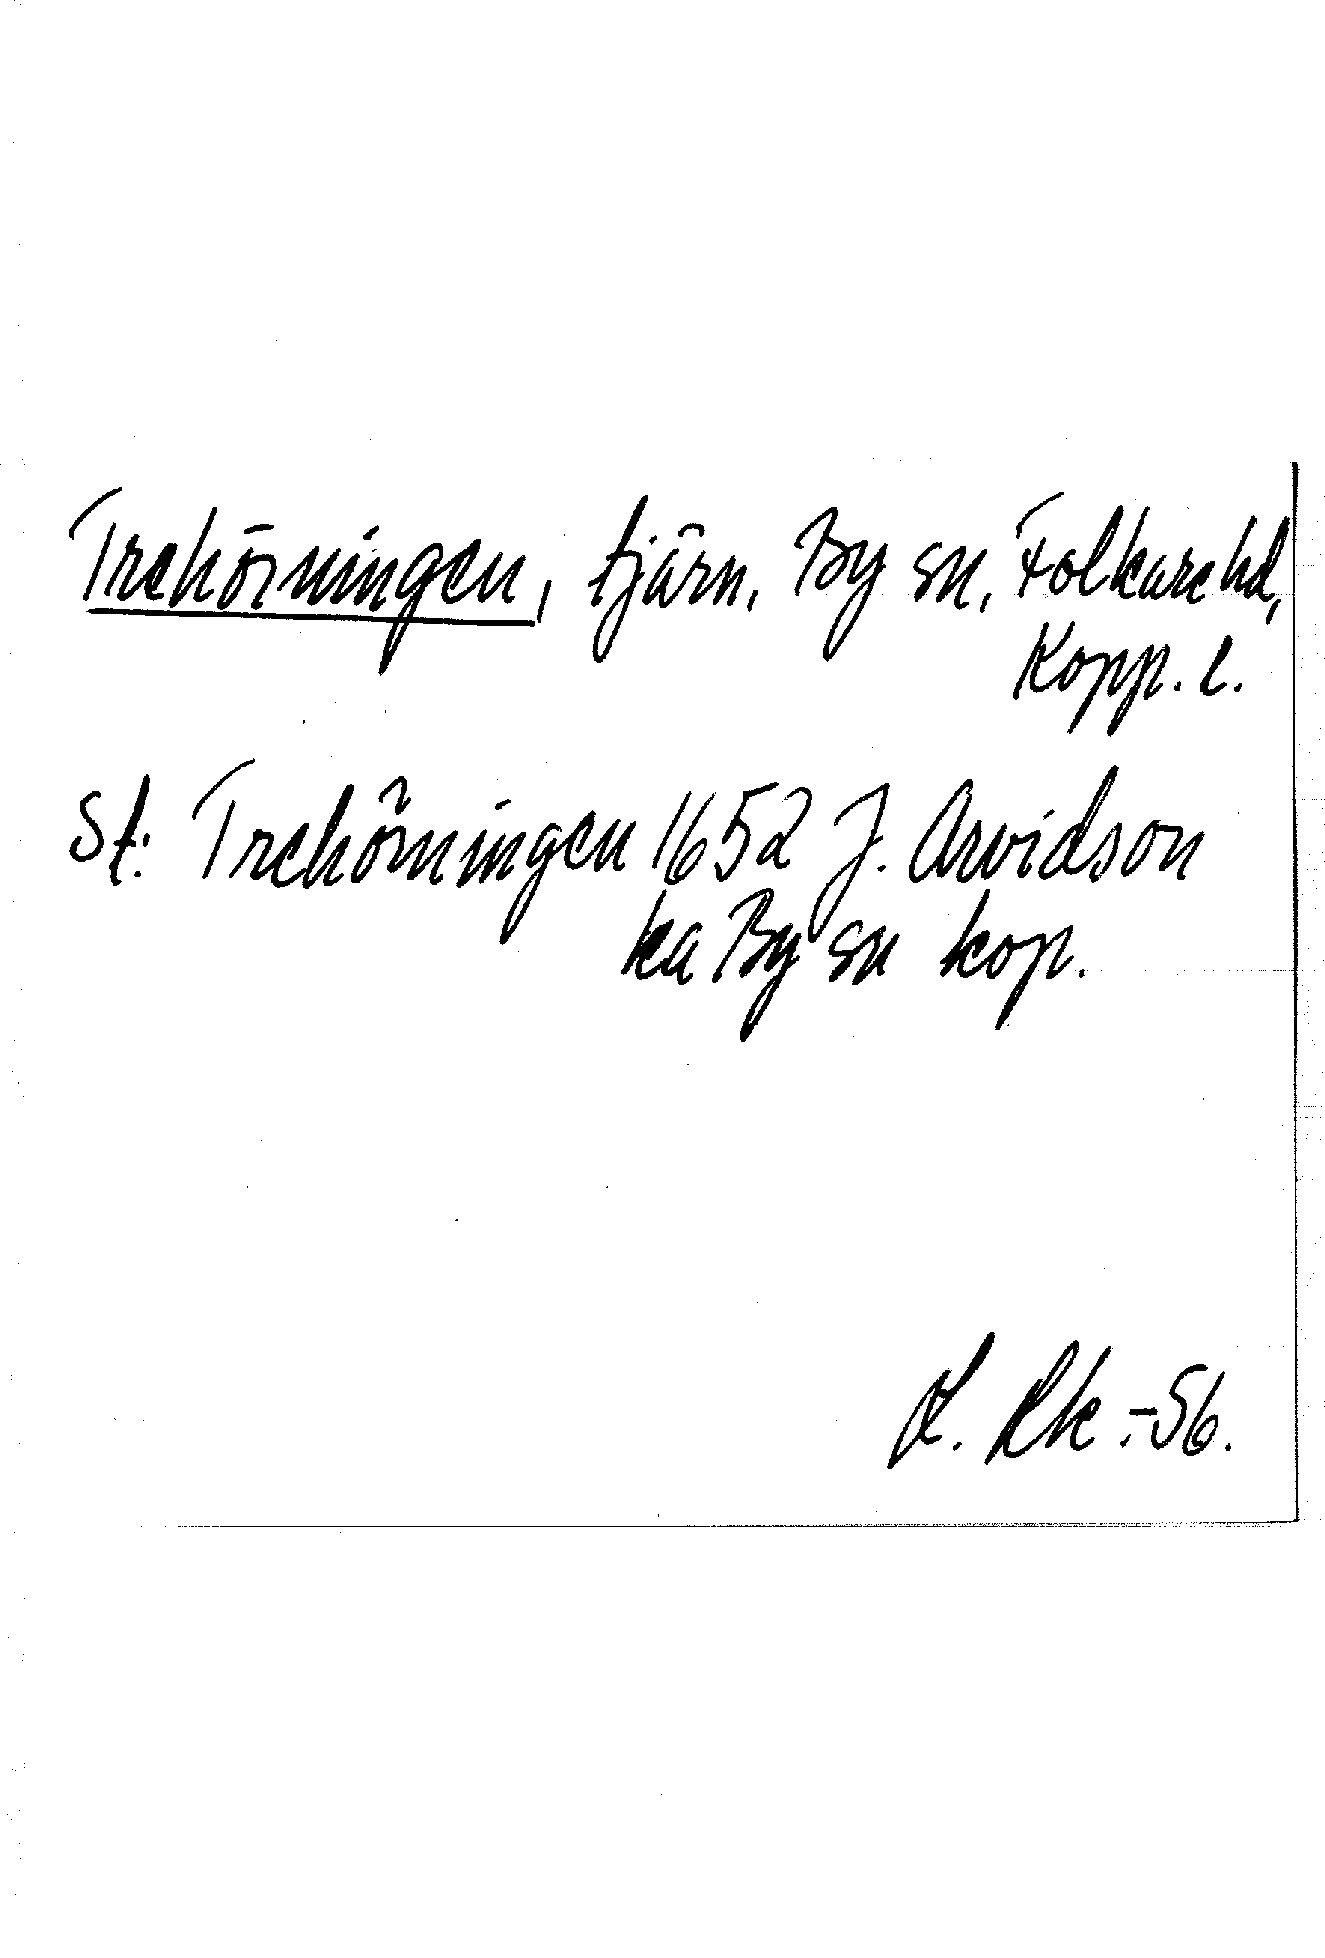 Trehörningen, tjärn, By sn, Folkare hd,
Kopp. l.
St. Trehörningen 1652 J. Arvidson
ka By sn kop.
Rk. -56.